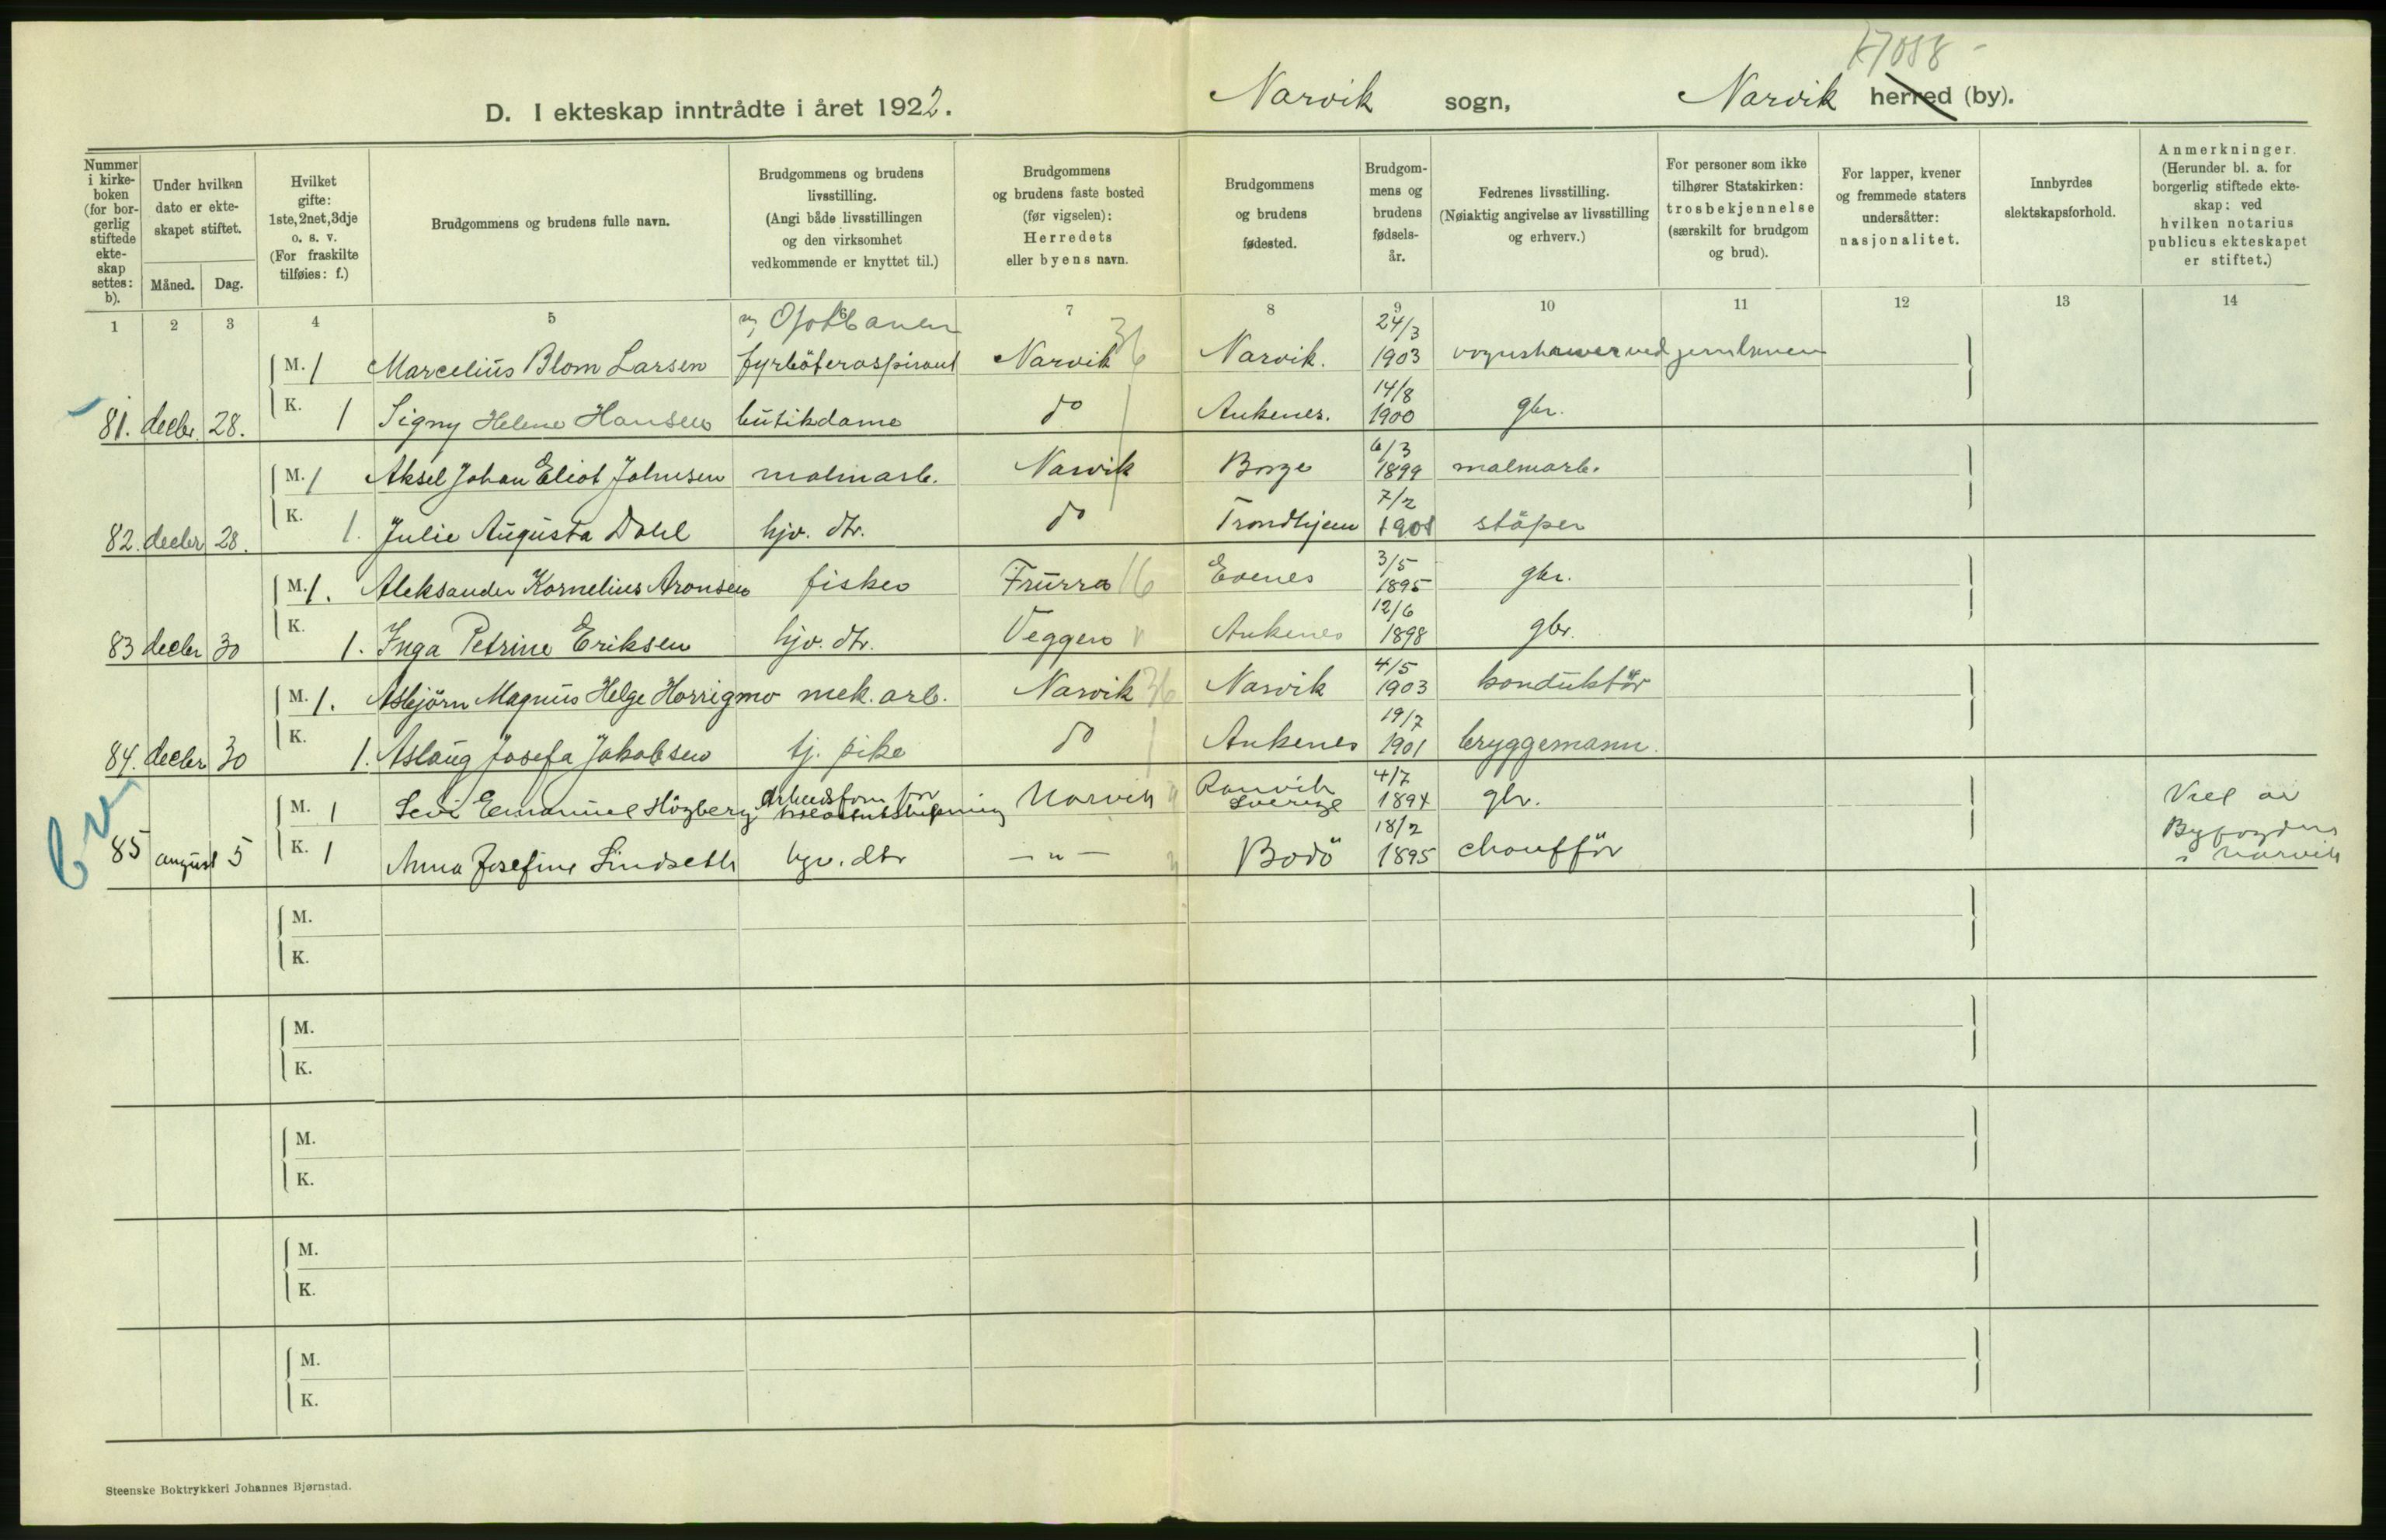 27058 -
D. I ekteskap inntrådte i året 1922.
Narvik sogn, Narvik herred (by).
Nummer i kirke-boken (for bor-gerlig stiftede ekte-skap settes: b).
Under hvilken dato er ekte-skapet stiftet.
Måned. Dag.
Hvilket gifte: 1ste, 2net, 3dje o. s. v. (For fraskilte tilføies: f.)
Brudgommens og brudens fulle navn.
Brudgommens og brudens livsstilling. (Angi både livsstillingen og den virksomhet vedkommende er knyttet til.)
Brudgommens og brudens faste bosted (før vigselen): Herredets eller byens navn.
Brudgommens og brudens fødested.
Brudgom-mens og brudens fødsels-år.
Fedrenes livsstilling. (Nøiaktig angivelse av livsstilling og erhverv.)
For personer som ikke tilhører Statskirken: trosbekjennelse (særskilt for brudgom og brud).
For lapper, kvener og fremmede staters undersåtter: nasjonalitet.
Innbyrdes slektskapsforhold.
Anmerkninger. (Herunder bl. a. for borgerlig stiftede ekte-skap: ved hvilken notarius publicus ekteskapet er stiftet.)
1 2 3 4 5 6 7 8 9 10 11 12 13 14
v, Ofotbanen
M. 1 Marcelius Blom Larsen fyrböteraspirant Narvik 36 Narvik. 24/3 1903 vognskriver ved jernbanen
81. decbr. 28. K. 1 Signy Helene Hansen butikdame do Ankenes. 14/8 1900 gbr.
M. 1 Aksel Johan Eliot Johnsen malmarb. Narvik Borge 6/3 1899 malmarb.
82. decbr 28. K. 1. Julie Augusta Dahl hjv. dtr. do Trondhjem 7/2 1901 stöper
M. 1. Aleksander Kornelius Aronsen fisker Frurra 16 Evenes 3/5 1895 gbr.
83 decbr 30 K. 1. Inga Petrine Eriksen hjv. dtr. Veggen Ankenes 12/6 1898 gbr.
M. 1. Asbjörn Magnus Helge Horrigmo mek. arb. Narvik 36 Narvik 4/5 1903 konduktör
84. decbr 30 K. 1. Aslaug Josefa Jakobsen tj. pike do Ankenes 19/7 1901 bryggemann.
M. 1 Levi Emanuel Högberg Arbeidsform. for Narvik Ranvik Sverige 4/7 1894 gbr. Viet av
85 august 5 K. 1 Anna Josefine Lindseth hjv. dtr — " — Bodö 18/2 1895 chaufför Byfogden i Narvik
M.
K.
M.
K.
M.
K.
M.
K.
M.
K.
Steenske Boktrykkeri Johannes Bjørnstad.